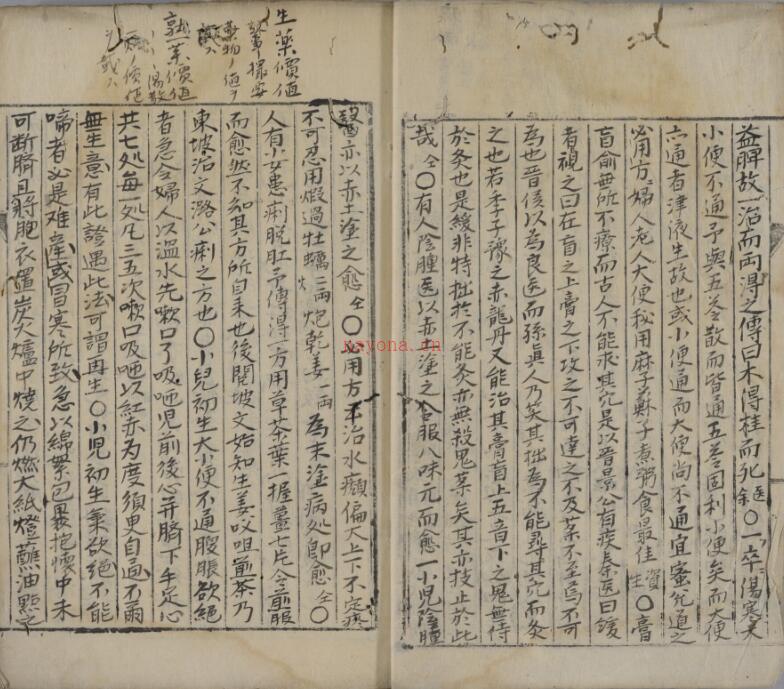 益脾故一治而両得之傳曰木得桂而死 鈺 〇一卒傷寒大
小便不通予與五苓散而皆通五苓固利小便矣而大便
亦通者津液生故也或小便通而大便尚不通宜蜜兌道之
必用方婦人老人大便秘用麻子蘇子煮粥食最佳 資生 〇膏
肓俞無所不療而古人不能求其穴是以晋景公有疾秦医曰緩
者視之曰在肓之上膏之下攻之不可達之不及薬不至焉不可
為也晋侯以為良医而孫真人乃笑其拙為不能尋其穴而灸
之也若李子豫之赤龍丹又能治其膏肓上五音下之鬼無待
於灸也是緩非特拙於不能灸亦無殺鬼薬矣其亦技止於此
哉 仝 〇有人陰腫医以赤土塗之令服八味元而愈一小児陰腫
醫亦以赤土塗之愈 仝 〇必用方 治水癩偏大上下不定疼
不可忍用煆過牡蠣二両炮乾姜一両為末塗病処即愈 仝 〇
人有少女患痢脱肛予傳得一方用草茶葉一握薑七片令煎服
而愈然不知其方所自来也後閲坡文始知生姜㕮咀煎茶乃
東坡治文潞公痢之方也〇小児初生大小便不通腹脹欲絶
者急令婦人以温水先嗽口了吸咂児前後心并臍下手足心
共七処每一処凡三五次嗽口吸咂以紅赤為度須臾自通不爾
無生意有此證遇此法可謂再生〇小児初生氣欲絶不能
啼者必是难產或冒寒所致急以綿絮包裹抱懷中未
可断臍且將胞衣置炭火爐中燒之仍燃大紙燈蘸油點之
生薬價値
薬物ノ値ヲ
熟薬價値
nayona.cn